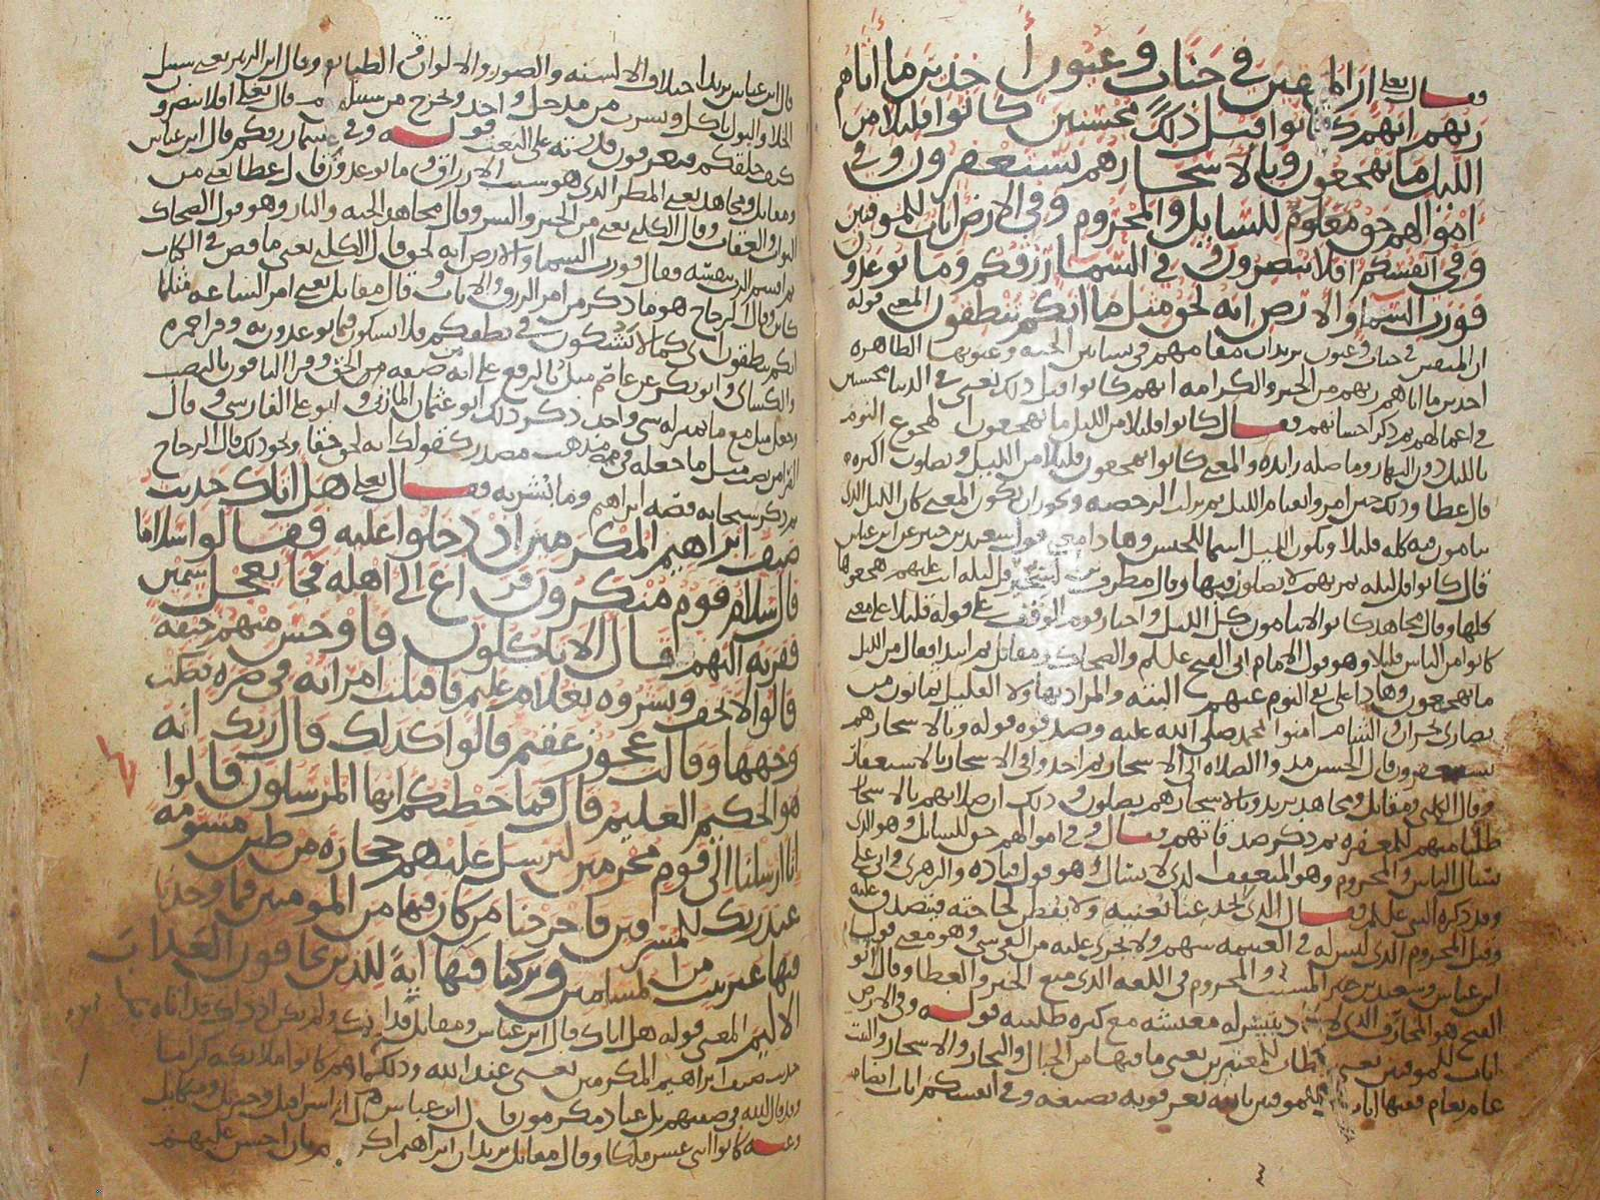 فقال تعالى ان المتقين في جنات وعيون آخذين ما اتاهم
ربهم انهم كانوا قبل ذلك محسنين كانوا قليلا من
الليل ما يهجعون وبالاسحار هم يستغفرون وفي
اموالهم حق معلوم للسايل والمحروم وفي الارض ايات للموقنين
وفي انفسكم افلا تبصرون وفي السما رزقكم وما توعدون
فورب السما والارض انه لحق مثل ما انكم تنطقون المعنى قوله
ان المتقين في جنات وعيون يريد ان مقامهم في بساتين الجنه وعيونها الطاهره
اخذين ما اتاهم ربهم من الخير والكرامه انهم كانوا قبل ذلك يعني في الدنيا محسنين
في اعمالهم ثم ذكر احسانهم فقال كانوا قليلا من الليل ما يهجعون الهجوع النوم
بالليل دون النهار وما صله زايده والمعنى كانوا يهجعون قليلا من الليل ويصلون اكثره
قال عطا وذلك حين امروا بقيام الليل ثم نزلت الرخصه ويجوز ان يكون المعنى كان الليل الذي
ينامون فيه كله قليلا ويكون الليل اسما للجنس وهذا معنى قول سعيد بن جبير عن ابن عباس
قال كانوا قل ليله تمر بهم لا يصلون فيها وقال مطرف بن الشخير قل ليله اتت عليهم هجعوها
كلها وقال مجاهد كانوا لا ينامون كل الليل واختار قوم الوقف على قوله قليلا على معنى
كانوا من الناس قليلا وهو قول الضحاك ومقاتل ثم ابتدا فقال من الليل
ما يهجعون وهذا على نفي النوم عنهم البته
نصارى نجران والشام امنوا بمحمد صلى الله عليه وصدقوه قوله وبالاسحار هم
يستغفرون قال الحسن مدوا الصلاه الى الاسحار ثم اخذوا في الاسحار بالاستغفار
وقال الكلبي ومقاتل ومجاهد يريد وبالاسحار هم يصلون وذلك ان صلاتهم بالاسحار
طلبا منهم للمغفره ثم ذكر صدقاتهم فقال وفي اموالهم حق للسايل وهو الذي
يسال الناس والمحروم وهو المتعفف الذي لا يسال وهو قول قتاده والزهري
فقال الذي لا يجد غنا يغنيه ولا يفطن لحاجته فيتصدق عليه
وقيل المحروم الذي ليس له في الغنيمه سهم ولا يجرى عليه من الفي شي وهو معنى قول
ابن عباس وسعيد بن جبير والمحروم في اللغه الذي منع الخير والعطا وقال ابو
الفتح هو المحارف الذي لا يتيسر له معيشه مع كثره طلبه قوله وفي الارض
ايات للموقنين يعني ما فيها من الجبال والبحار والاشجار والنبت
عاما بعام ففيها ايات للموقنين بالله يعرفونه بصنعه وفي انفسكم ايات ايضا
قال ابن عباس يريد اختلاف الالسنه والصور والالوان والطبايع وقال ابن الزبير يعني سبيل
الخلا والبول ياكل ويشرب من مدخل واحد ويخرج من سبيلين وقال تعالى افلا تبصرون
كيف خلقكم فتعرفون قدرته على البعث قوله وفي السما رزقكم قال ابن عباس
ومقاتل ومجاهد يعني المطر الذي هو سبب الارزاق وما توعدون قال عطا يعني من
الثواب والعقاب وقال الكلبي يعني من الخير والشر وقال مجاهد الجنه والنار وهو قول الضحاك
ثم اقسم الرب بنفسه فقال فورب السما والارض انه لحق قال الكلبي يعني ما قص في الكتاب
وقال الزجاج هو ما ذكر من امر الرزق والايات وقال مقاتل يعني امر الساعه مثلما
انكم تنطقون اي كما لا تشكون في نطقكم فلا تشكوا فيما توعدون به وقرا حمزه
والكسائي وابو بكر عن عاصم مثل بالرفع على انه صفه من الحق وقرا الباقون بالنصب
وجعل مثل مع ما بمنزله شي واحد ذكر ذلك ابو عثمان المازني وابو علي الفارسي وقال
الفرا من نصب مثل ما جعله في مذهب مصدر كقولك انه لحق حقا ونحو ذلك قال الزجاج
ثم ذكر سبحانه قصه ابراهيم وما بشر به فقال تعالى هل اتاك حديث
ضيف ابراهيم المكرمين اذ دخلوا عليه فقالوا سلاما
قال سلام قوم منكرون فراغ الى اهله فجا بعجل سمين
فقربه اليهم قال الا تاكلون فاوجس منهم خيفه
قالوا لا تخف وبشروه بغلام عليم فاقبلت امراته في صره فصكت
وجهها وقالت عجوز عقيم قالوا كذلك قال ربك انه
هو الحكيم العليم قال فما خطبكم ايها المرسلون قالوا
انا ارسلنا الى قوم مجرمين لنرسل عليهم حجاره من طين مسومه
عند ربك للمسرفين فاخرجنا من كان فيها من المومنين فما وجدنا
فيها غير بيت من المسلمين وتركنا فيها ايه للذين يخافون العذاب
الاليم المعنى قوله هل اتاك قال ابن عباس ومقاتل قد اتيك ولم يكن اذ ذاك قد اتاه
حديث ضيف ابراهيم المكرمين يعني عند الله وذلك انهم كانوا ملائكه كراما
وقد قال الله في صفتهم بل عباد مكرمون قال ابن عباس اسرافيل وجبريل وميكايل
كانوا اثني عشر ملكا وقال مقاتل يريد ان ابراهيم اكرمهم واحسن عليهم